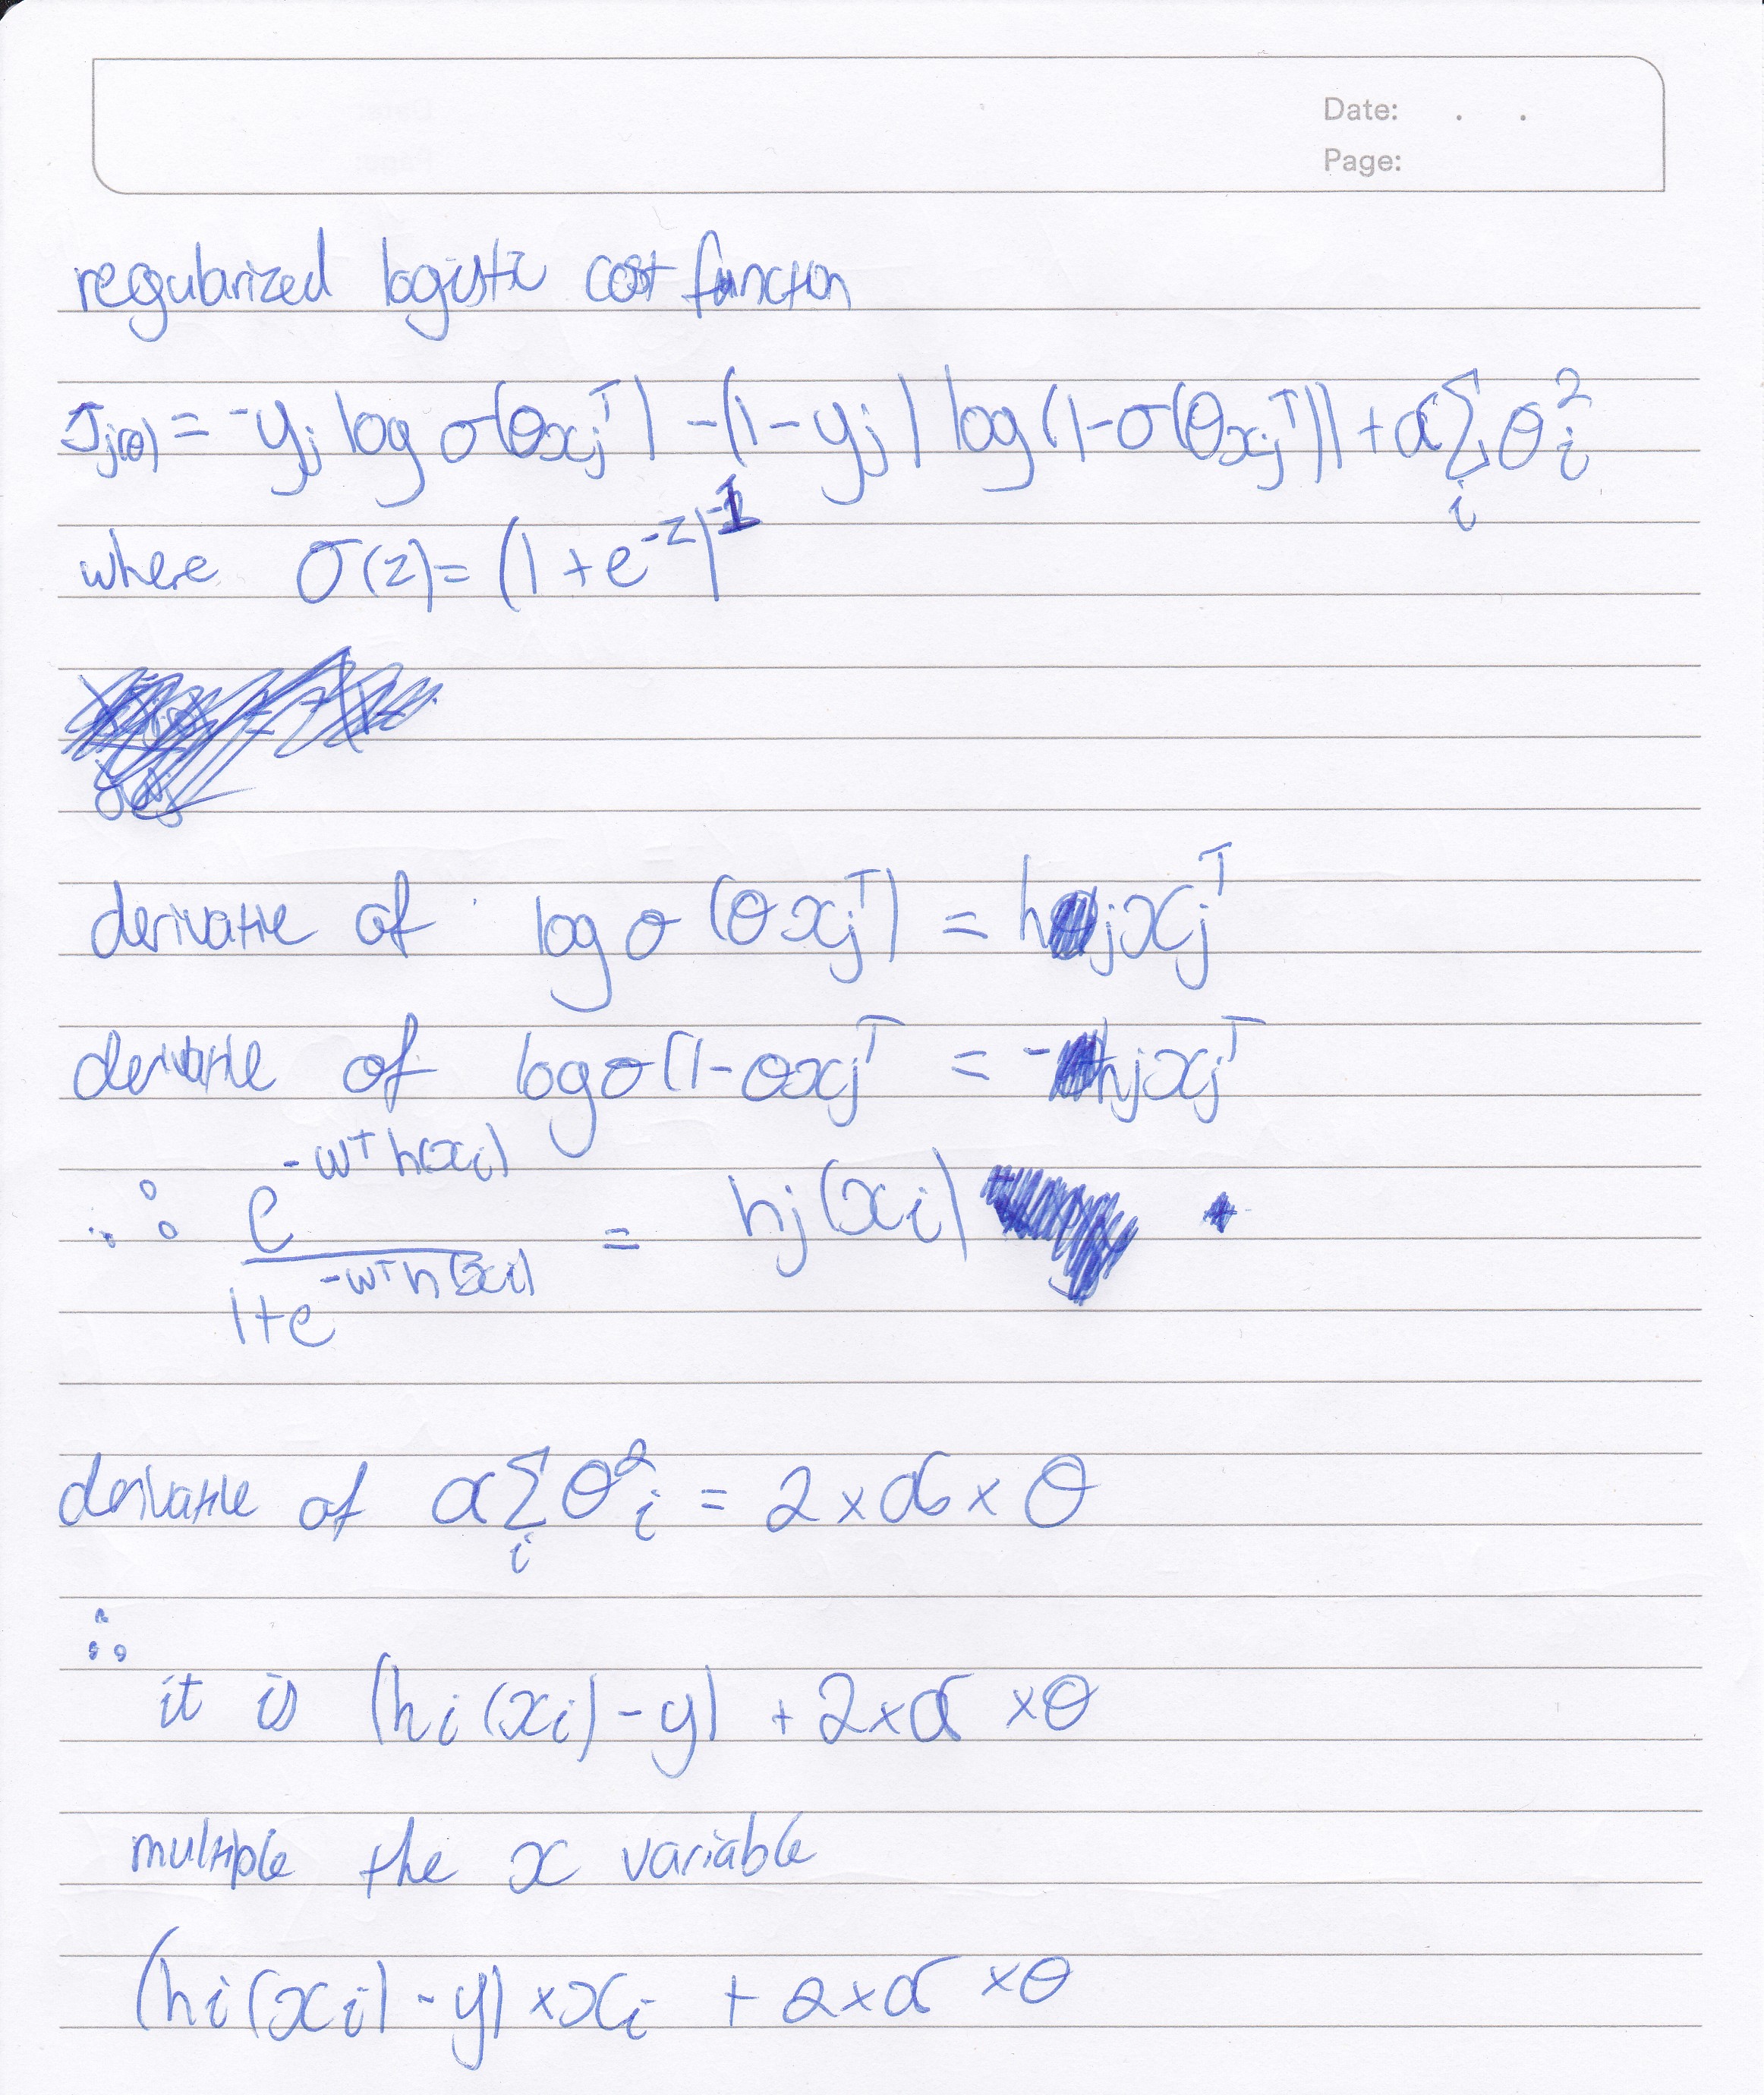 Date: . .
Page:
regularized logistic cost function
Jj(θ) = -yj log σ(θxjᵀ) -(1-yj) log(1-σ(θxjᵀ)) + α∑i θi²
where σ(z) = (1+e^-z)^-1
derivative of log σ (θxjᵀ) = hjxjᵀ
derivative of log σ(1-θxjᵀ = -hjxjᵀ
∴ e^-wᵀh(xi) / 1+e^-wᵀh(xi) = hj(xi)
derivative of α∑i θ²i = 2×α×θ
∴
it is (hi(xi)-y) + 2×α×θ
multiple the x variable
(hi(xi)-y)×xi + 2×α×θ